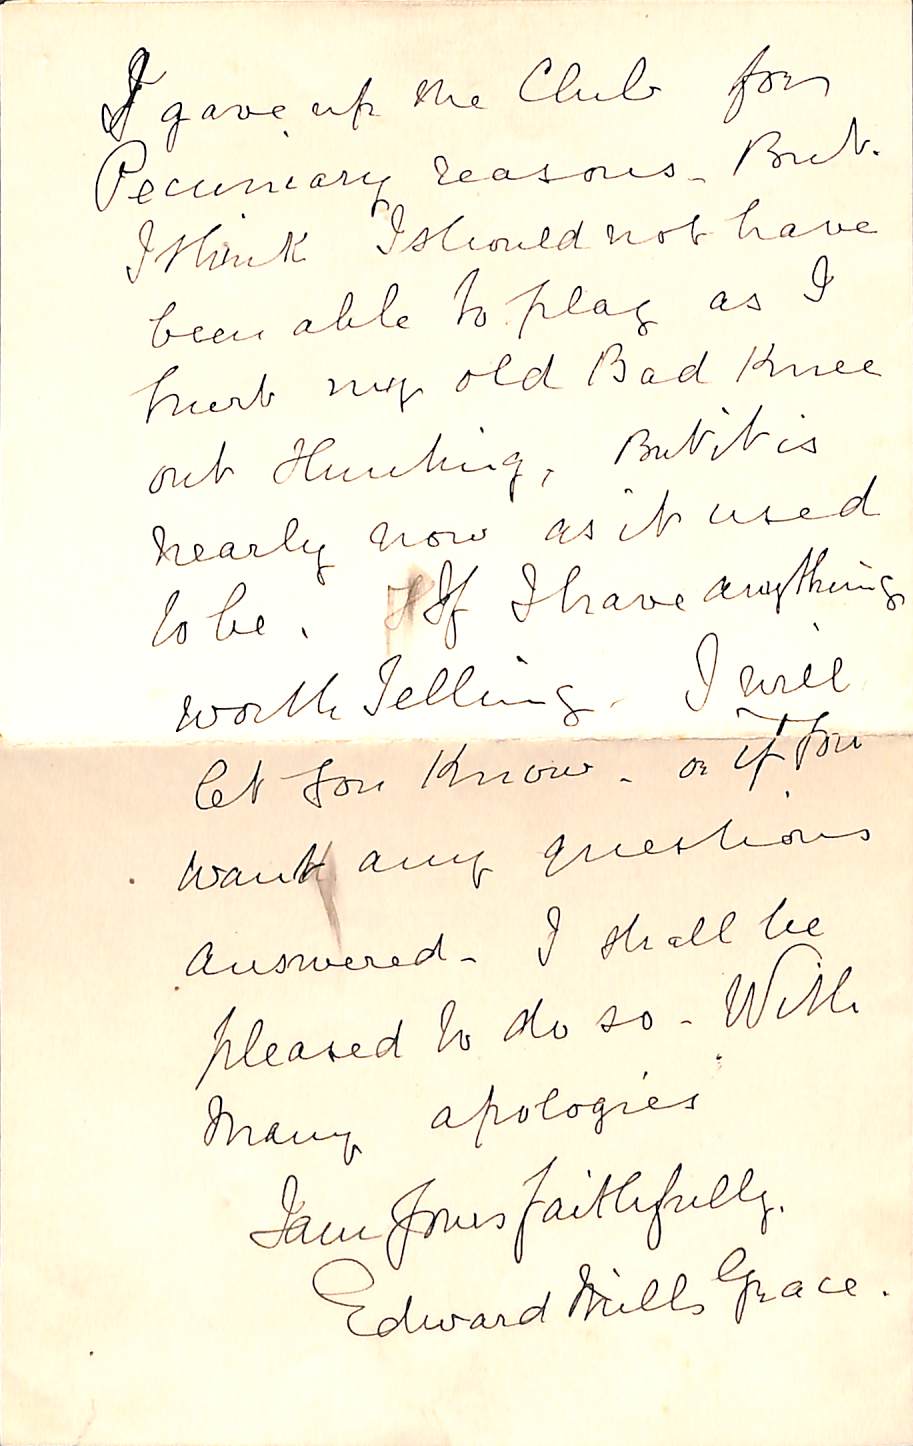 I gave up the Club for
Pecuniary reasons - But.
I think I should not have
been able to play as I
hurt my old Bad Knee
out Hunting, But it is
nearly now as it used
to be. If I have anything
worth Telling. I will
let you Know - or if you
want any questions
answered - I shall be
pleased to do so - With
Many apologies
I am Yours faithfully.
Edward Mills Grace.